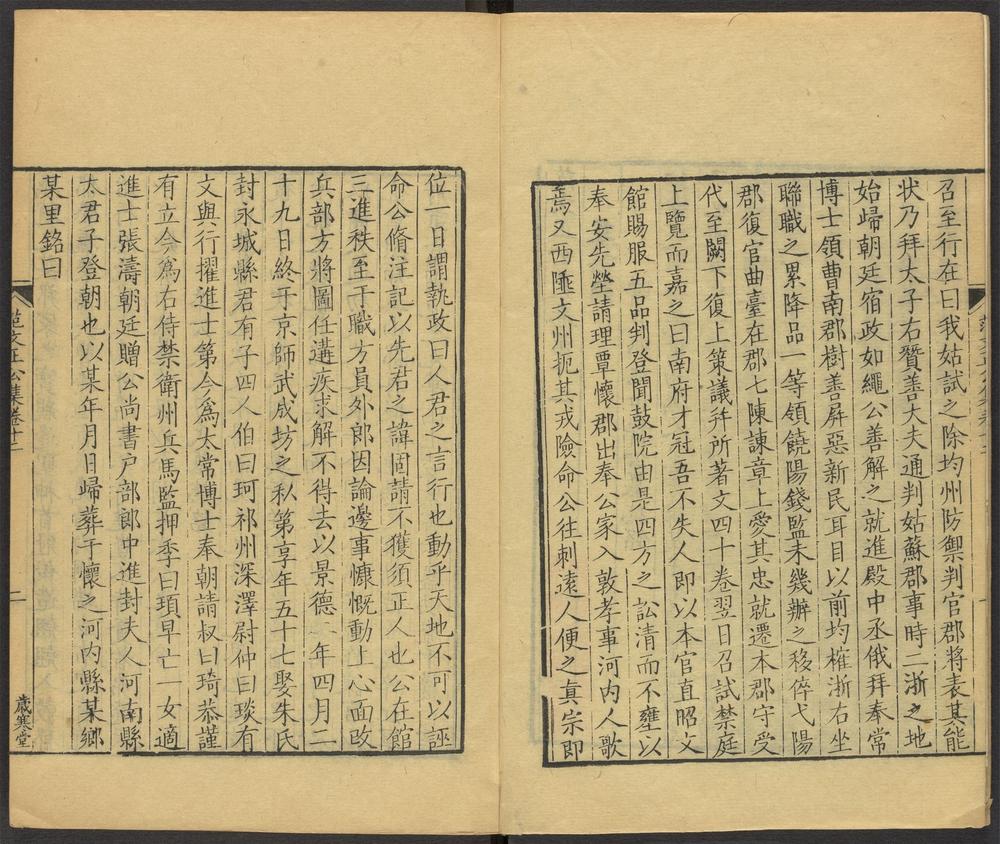 召至行在曰我姑試之除均州防禦判官郡將表其能
狀乃拜太子右贊善大夫通判姑蘇郡事時二浙之地
始歸朝廷宿政如繩公善解之就進殿中丞俄拜奉常
博士領曹南郡樹善屏惡新民耳目以前均榷浙右坐
聯職之累降品一等領饒陽錢監未幾辦之移倅弋陽
郡復官曲臺在郡七陳諫章上愛其忠就遷本郡守受
代至闕下復上策議幷所著文四十卷翌日召試禁庭
上覽而嘉之曰南府才冠吾不失人即以本官直昭文
館賜服五品判登聞鼓院由是四方之訟清而不壅以
奉安先塋請理覃懷郡出奉公家入敦孝事河内人歌
焉又西陲文州扼其戎險命公往刺遠人便之真宗即
位一日謂執政曰人君之言行也動乎天地不可以誣
命公脩注記以先君之諱固請不獲須正人也公在館
三進秩至于職方員外郎因論邊事慷慨動上心面改
兵部方將圖任遘疾求解不得去以景德二年四月二
十九日終于京師武成坊之私第享年五十七娶朱氏
封永城縣君有子四人伯曰珂祁州深澤尉仲曰琰有
文與行擢進士第今為太常博士奉朝請叔曰琦恭謹
有立今為右侍禁衛州兵馬監押季曰頊早亡一女適
進士張濤朝廷贈公尚書户部郎中進封夫人河南縣
太君子登朝也以某年月日歸葬于懷之河内縣某鄉
某里銘曰
范文正公集卷十二
二
歲寒堂